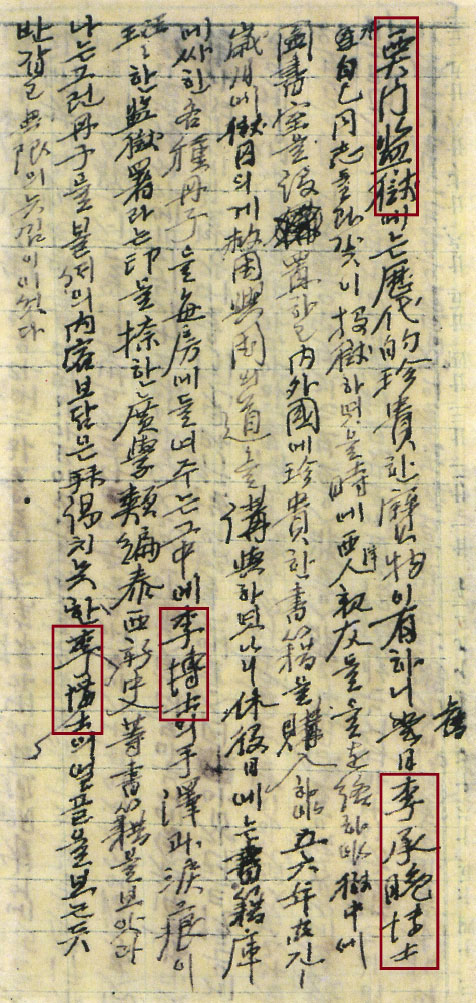 西大門監獄에는歷代的珍貴한寶物이有하니昔日李承晩博士
自己同志들과갓이投獄하엿을時에西洋人親友들을連絡하야獄中에
圖書室을設置하고內外國에珍貴한書籍을購入하야五六年
歲月에獄囚의게救國興國의道를講與하엿나니休役日에는書籍庫
에싸힌各種冊子을每房에들녀주는그中에李博士의手澤과淚痕이
한監獄署라는印을捺한廣學類編泰西新史等書籍을보앗다
나는그런冊子을볼때의內容보담은拜謁치못한李博士의얼골을보는듯
반갑고無限의늣김이이섯다